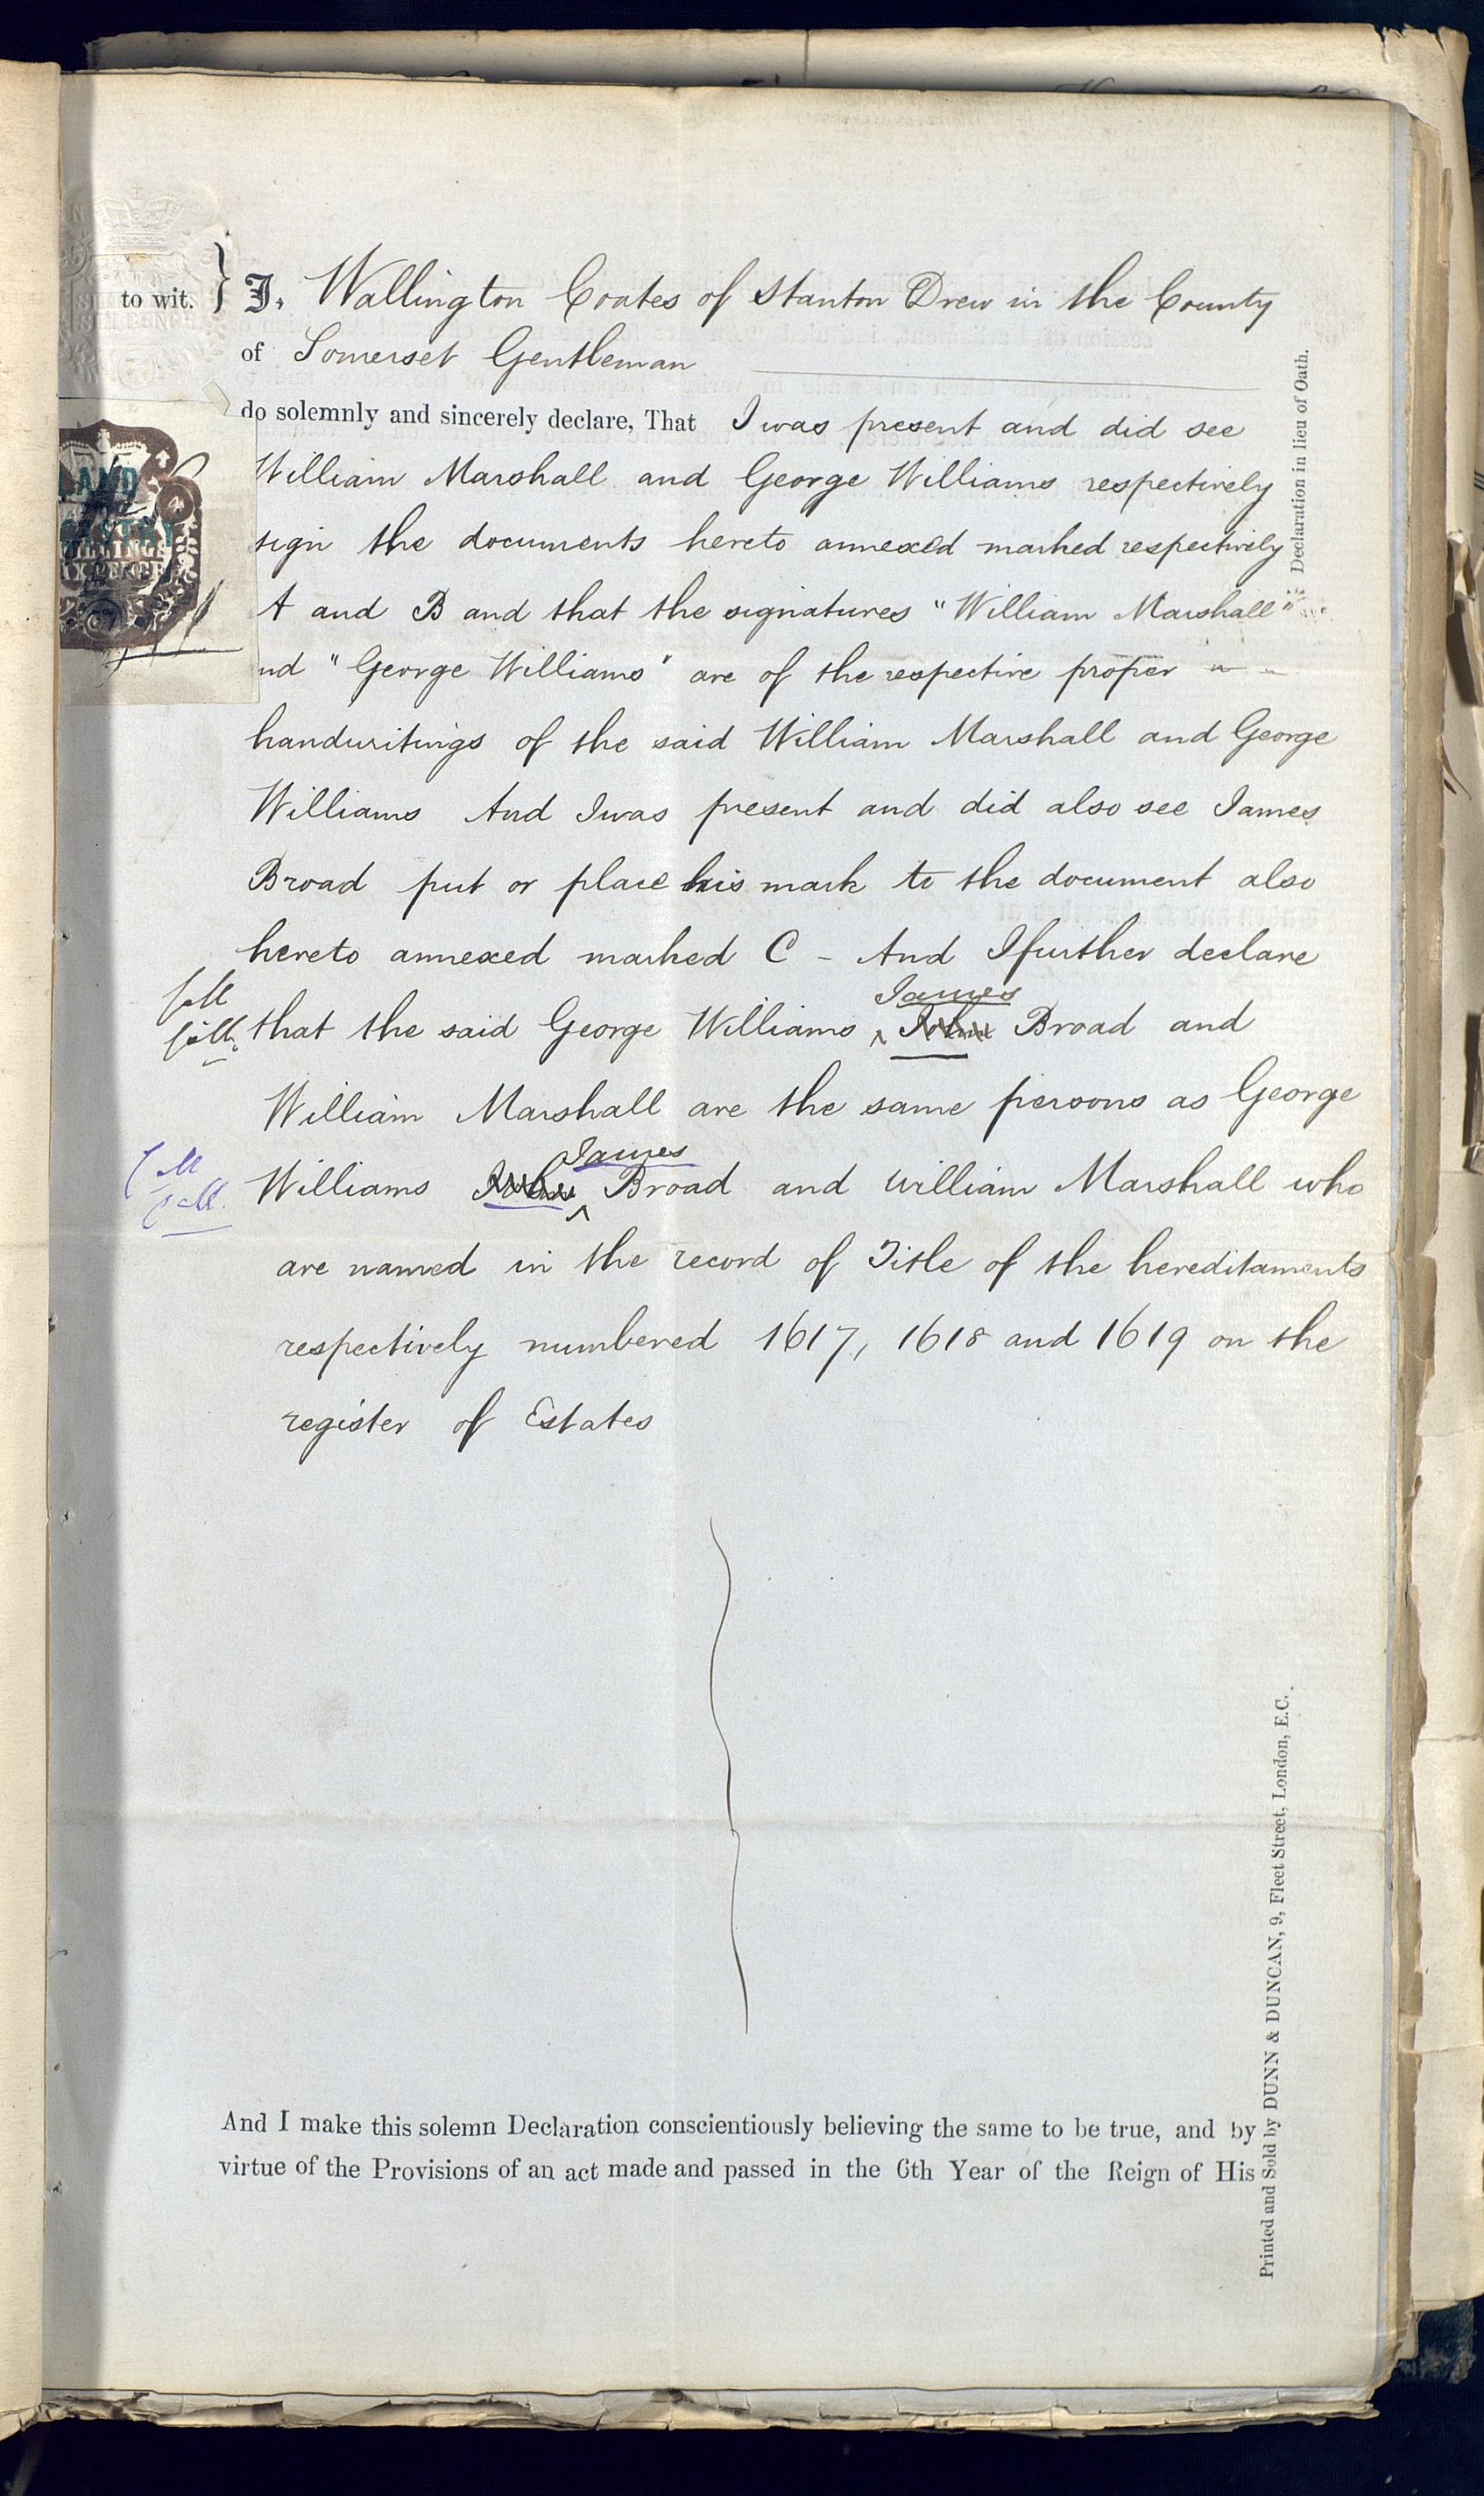 to wit. } I, Wallington Coates of Stanton Drew in the County
of Somerset Gentleman
do solemnly and sincerely declare, That I was present and did see
William Marshall and George Williams respectively
sign the documents hereto annexed marked respectively
A and B and that the signatures "William Marshall"
nd "George Williams" are of the respective proper
handwritings of the said William Marshall and George
Williams And I was present and did also see James
Broad put or place his mark to the document also
hereto annexed marked C - And I further declare
James
that the said George Williams ^ John Broad and
William Marshall are the same persons as George
James
Williams John ^ Broad and William Marshall who
are named in the record of Title of the hereditaments
respectively numbered 1617, 1618 and 1619 on the
register of Estates
And I make this solemn Declaration conscientiously believing the same to be true, and by
virtue of the Provisions of an act made and passed in the 6th Year of the Reign of His
Declaration in lieu of Oath.
Printed and Sold by DUNN & DUNCAN, 9, Fleet Street, London, E.C.